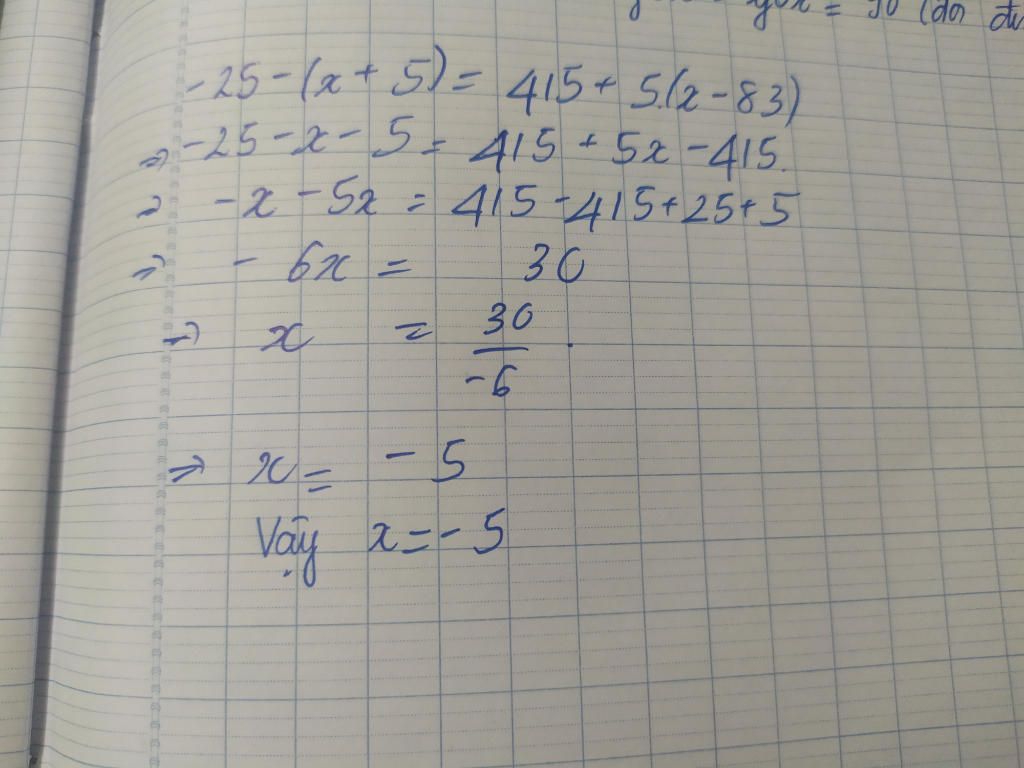 = 90 (đơn
-25 - (x + 5) = 415 + 5.(x - 83)
⇒ -25 - x - 5 = 415 + 5x - 415.
⇒ -x - 5x = 415 - 415 + 25 + 5
⇒ - 6x = 30
⇒ x = 30/-6 .
⇒ x = - 5
Vậy x = - 5